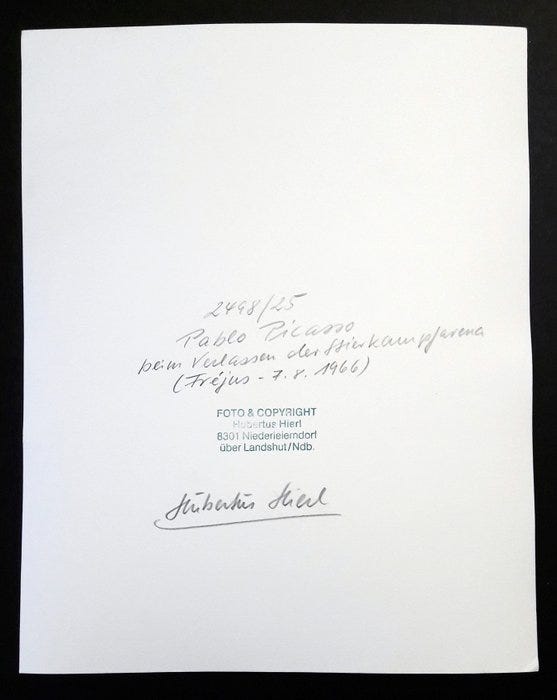 2498/25
Pablo Picasso
beim Verlassen der Stierkampfarena
(Fréjus - 7.8.1966)
FOTO & COPYRIGHT
Hubertus Hierl
8301 Niedereierndorf
über Landshut/Ndb.
Hubertus Hierl